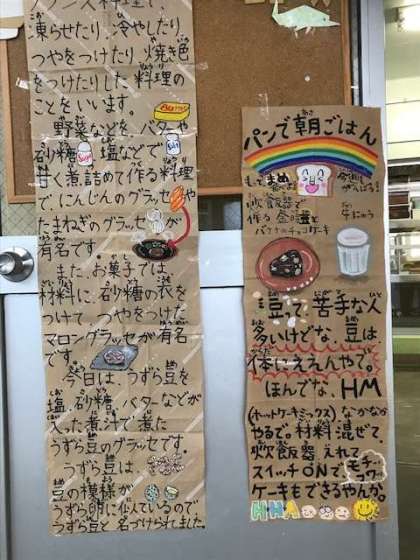 フランス料理で、
凍らせたり、冷やしたり
つやをつけたり、焼き色
をつけたりした料理の
ことをいいます。
野菜などを、バターや
砂糖、塩などで
甘く煮詰めて作る料理
で、にんじんのグラッセや
たまねぎのグラッセが
有名です
また、お菓子では、
材料に、砂糖の衣を
つけて、つやをつけた
マロングラッセが有名
です。
今日は、うずら豆を
塩、砂糖、バターなどが
入った煮汁で煮た
うずら豆のグラッセです。
うずら豆は、
豆の模様が
うずら卵に似ているので
うずら豆と名づけられました
パンで朝ごはん
炊飯器で
作る金時豆と
バナナのチョコケーキ
牛にゅう
豆って、苦手な人
多いけどな、豆は、
体にええんやで。
ほんでな、HM
(ホットケーキミックス)なかなか
やるで。材料混ぜて、
炊飯器えれて
スイッチONで、モチ〜フワ〜
ケーキもできるやんか。
HHA